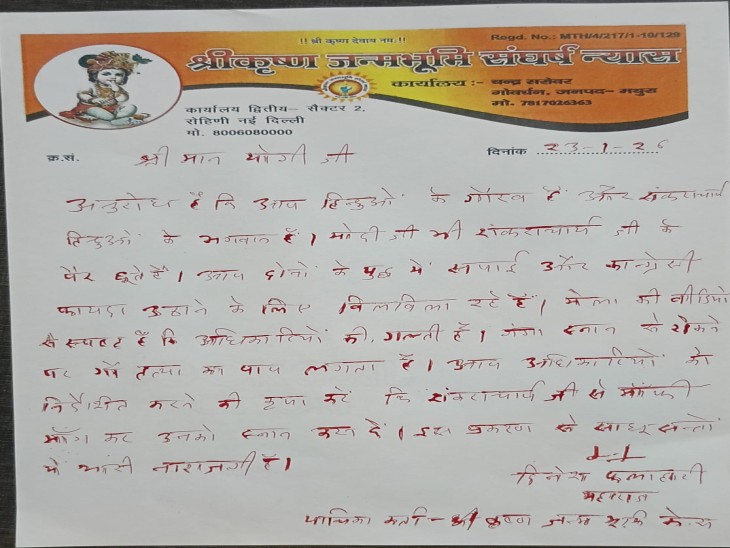 !! श्री कृष्ण देवाय नमः !!
Regd. No.: MTH/4/217/1-10/129
श्रीकृष्ण जन्मभूमि संघर्ष न्यास
कार्यालय :- चन्द्र सरोवर
गोवर्धन, जनपद- मथुरा
मो. 7817026363
कार्यालय द्वितीय– सैक्टर 2,
रोहिणी नई दिल्ली
मो. 8006080000
क्र.सं. श्री मान योगी जी दिनांक 23-1-26
अनुरोध है कि आप हिन्दुओं के गौरव हैं और शंकराचार्य
हिन्दुओं के भगवान हैं। मोदी जी भी शंकराचार्य जी के
पैर छूते हैं। आप दोनों के युद्ध में सपाई और कांग्रेसी
फायदा उठाने के लिए बिलबिला रहे हैं। मेला की वीडियो
से स्पष्ट है कि अधिकारियों की गलती है। गंगा स्नान से रोकने
पर गौ हत्या का पाप लगता है। आप अधिकारियों को
निर्देशित करने की कृपा करें कि शंकराचार्य जी से माँफी
माँग कर उनको स्नान करा दें। इस प्रकरण से साधू सन्तों
में भारी नाराजगी है।
दिनेश फलाहारी
महाराज
याचिका कर्ता - श्री कृष्ण जन्म भूमि केस